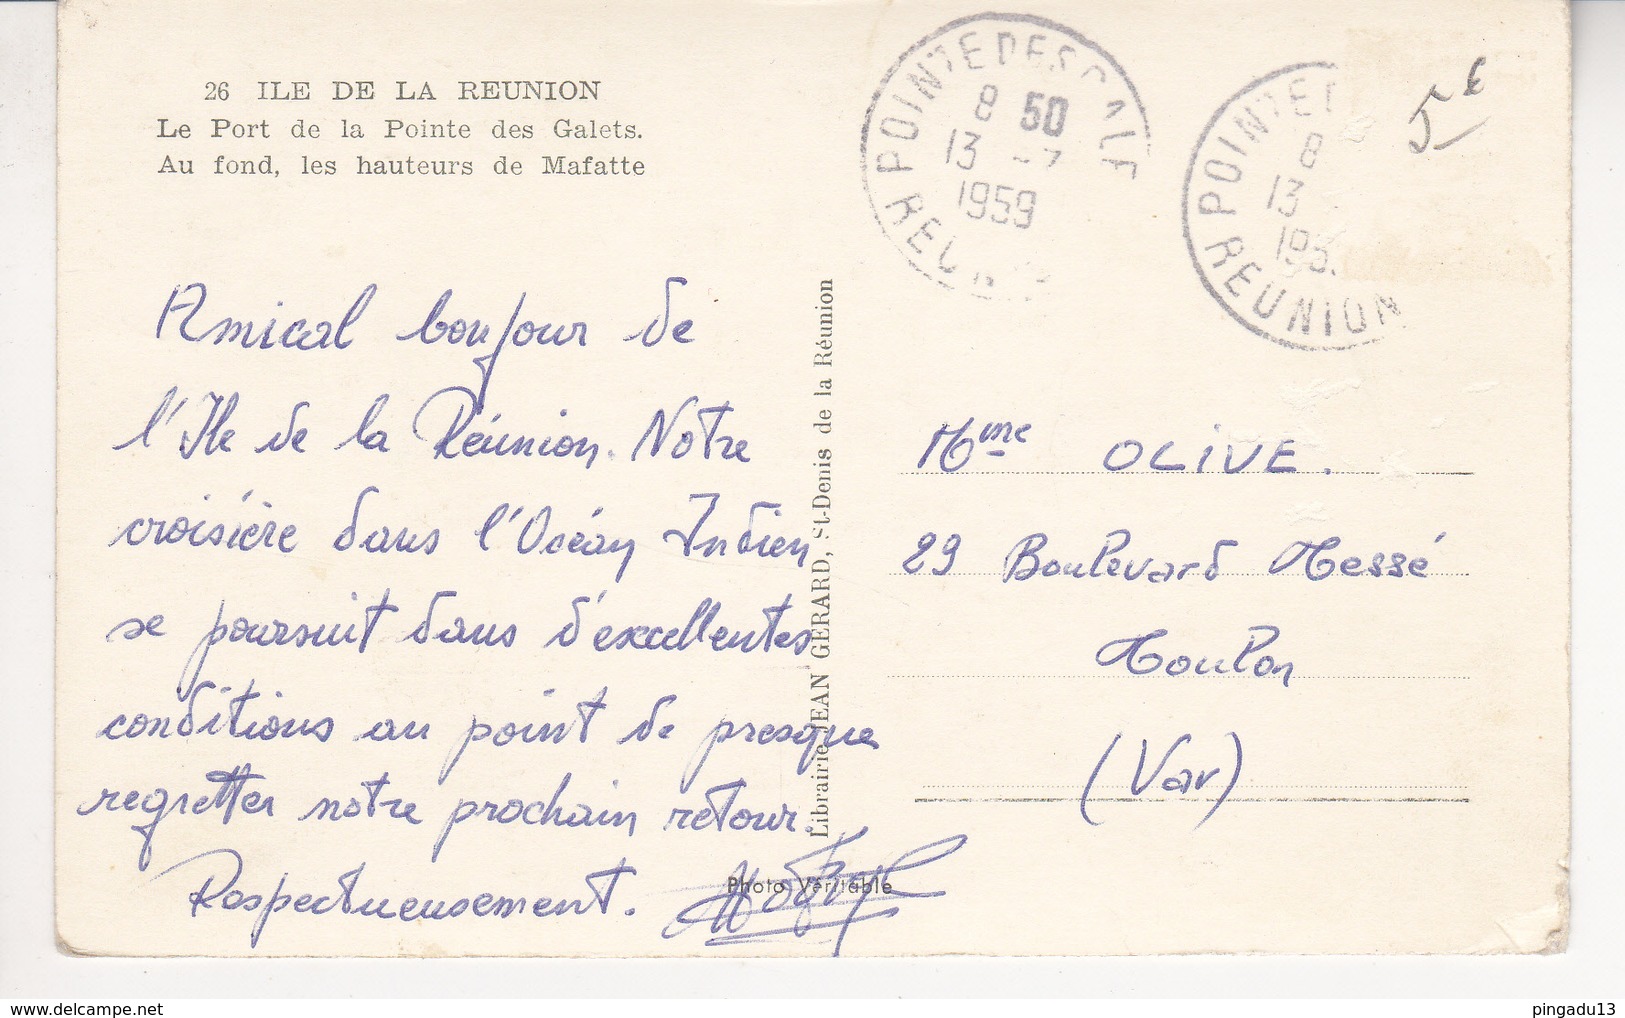 26 ILE DE LA REUNION
Le Port de la Pointe des Galets.
Au fond, les hauteurs de Mafatte
POINTE DES GALE
8 50
13 -7
1959
REU
POINTE D
8
13
195
REUNION
5€
Amical bonjour de
l'Ile de la Réunion. Notre
croisière dans l'Océan Indien
se poursuit dans d'excellentes
conditions au point de presque
regretter notre prochain retour.
Respectueusement.
Librairie JEAN GERARD, St-Denis de la Réunion
Photo Véritable
Mme OLIVE.
29 Boulevard Messé
Toulon
(Var)
pingadu13